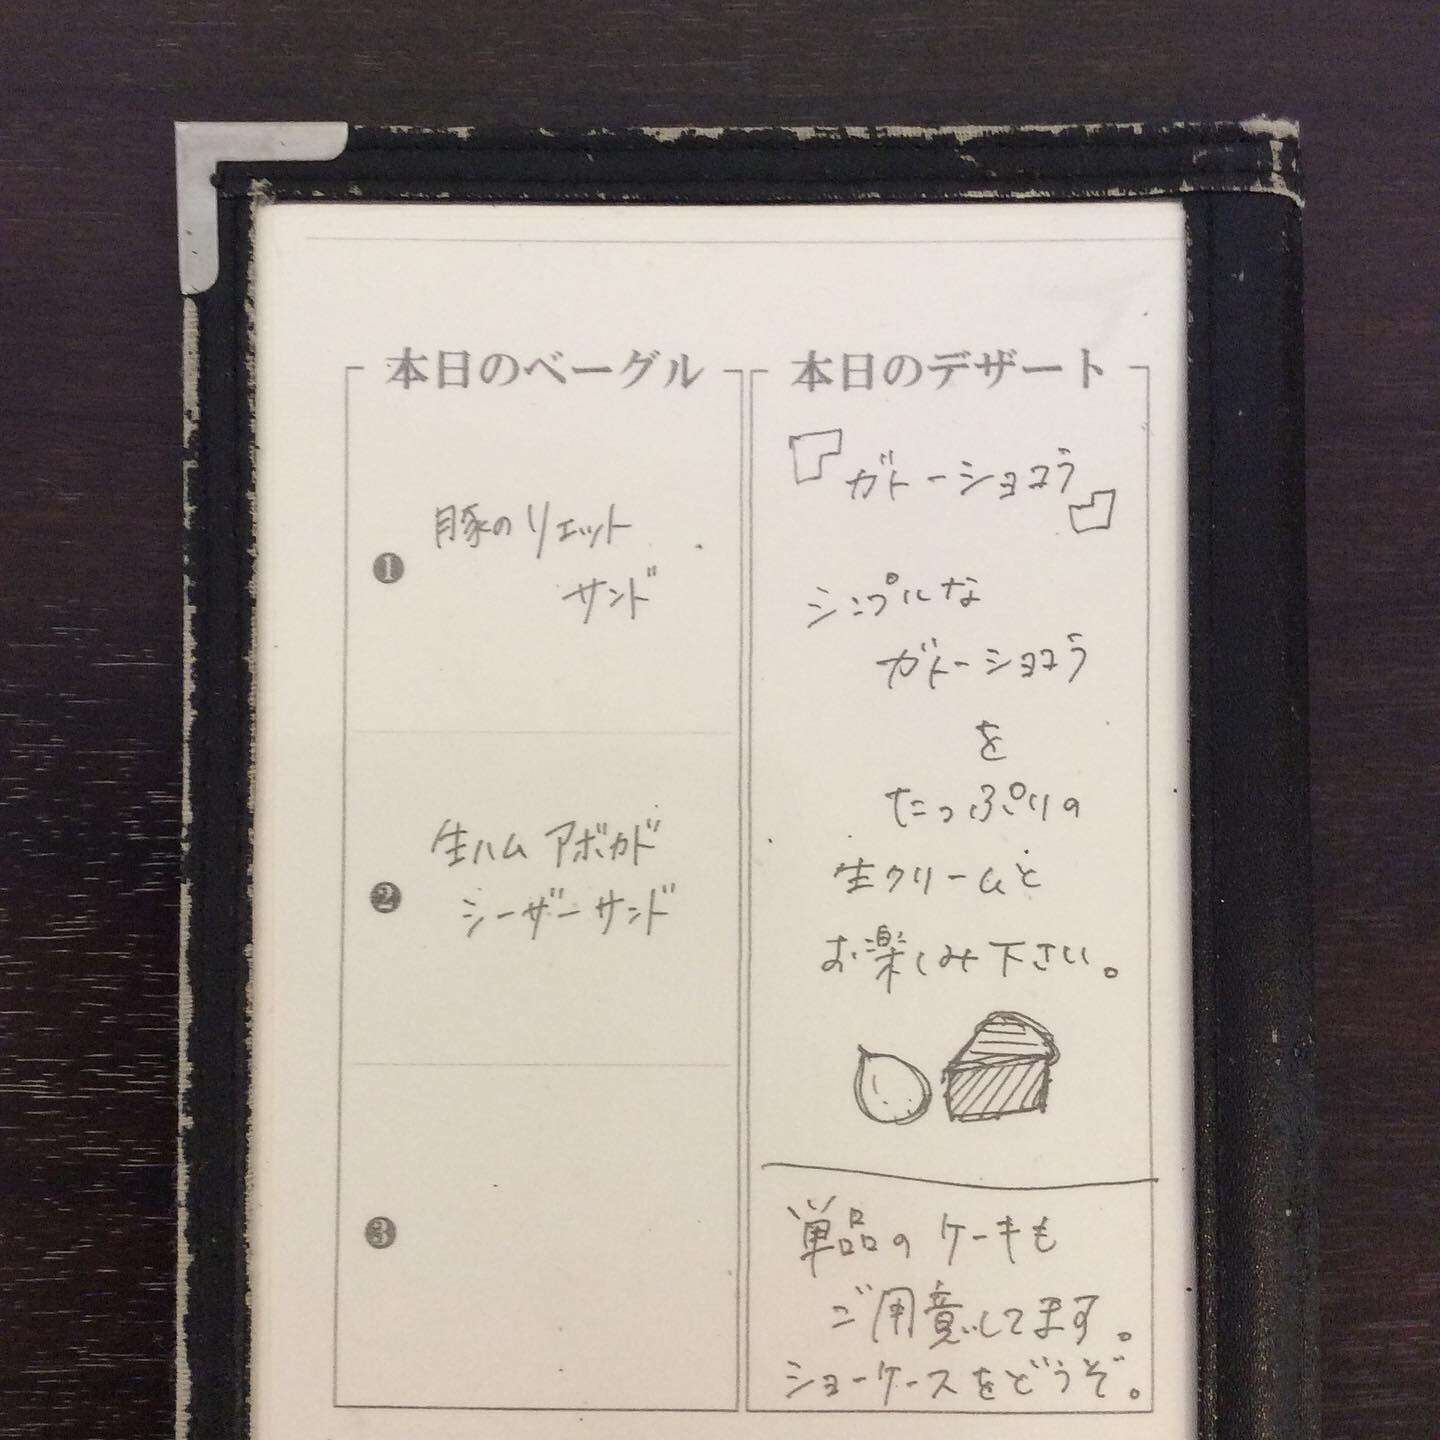 本日のベーグル
❶ 豚のリエット
サンド
❷ 生ハム アボカド
シーザーサンド
❸
本日のデザート
『ガトーショコラ』
シンプルな
ガトーショコラ
を
たっぷりの
生クリームと
お楽しみ下さい。
単品のケーキも
ご用意してます。
ショーケースをどうぞ。